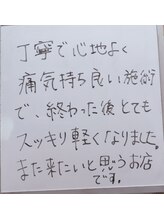 丁寧で心地よく
痛気持ち良い施術
で、終わった後とても
スッキリ軽くなりました。
また来たいと思うお店
です。